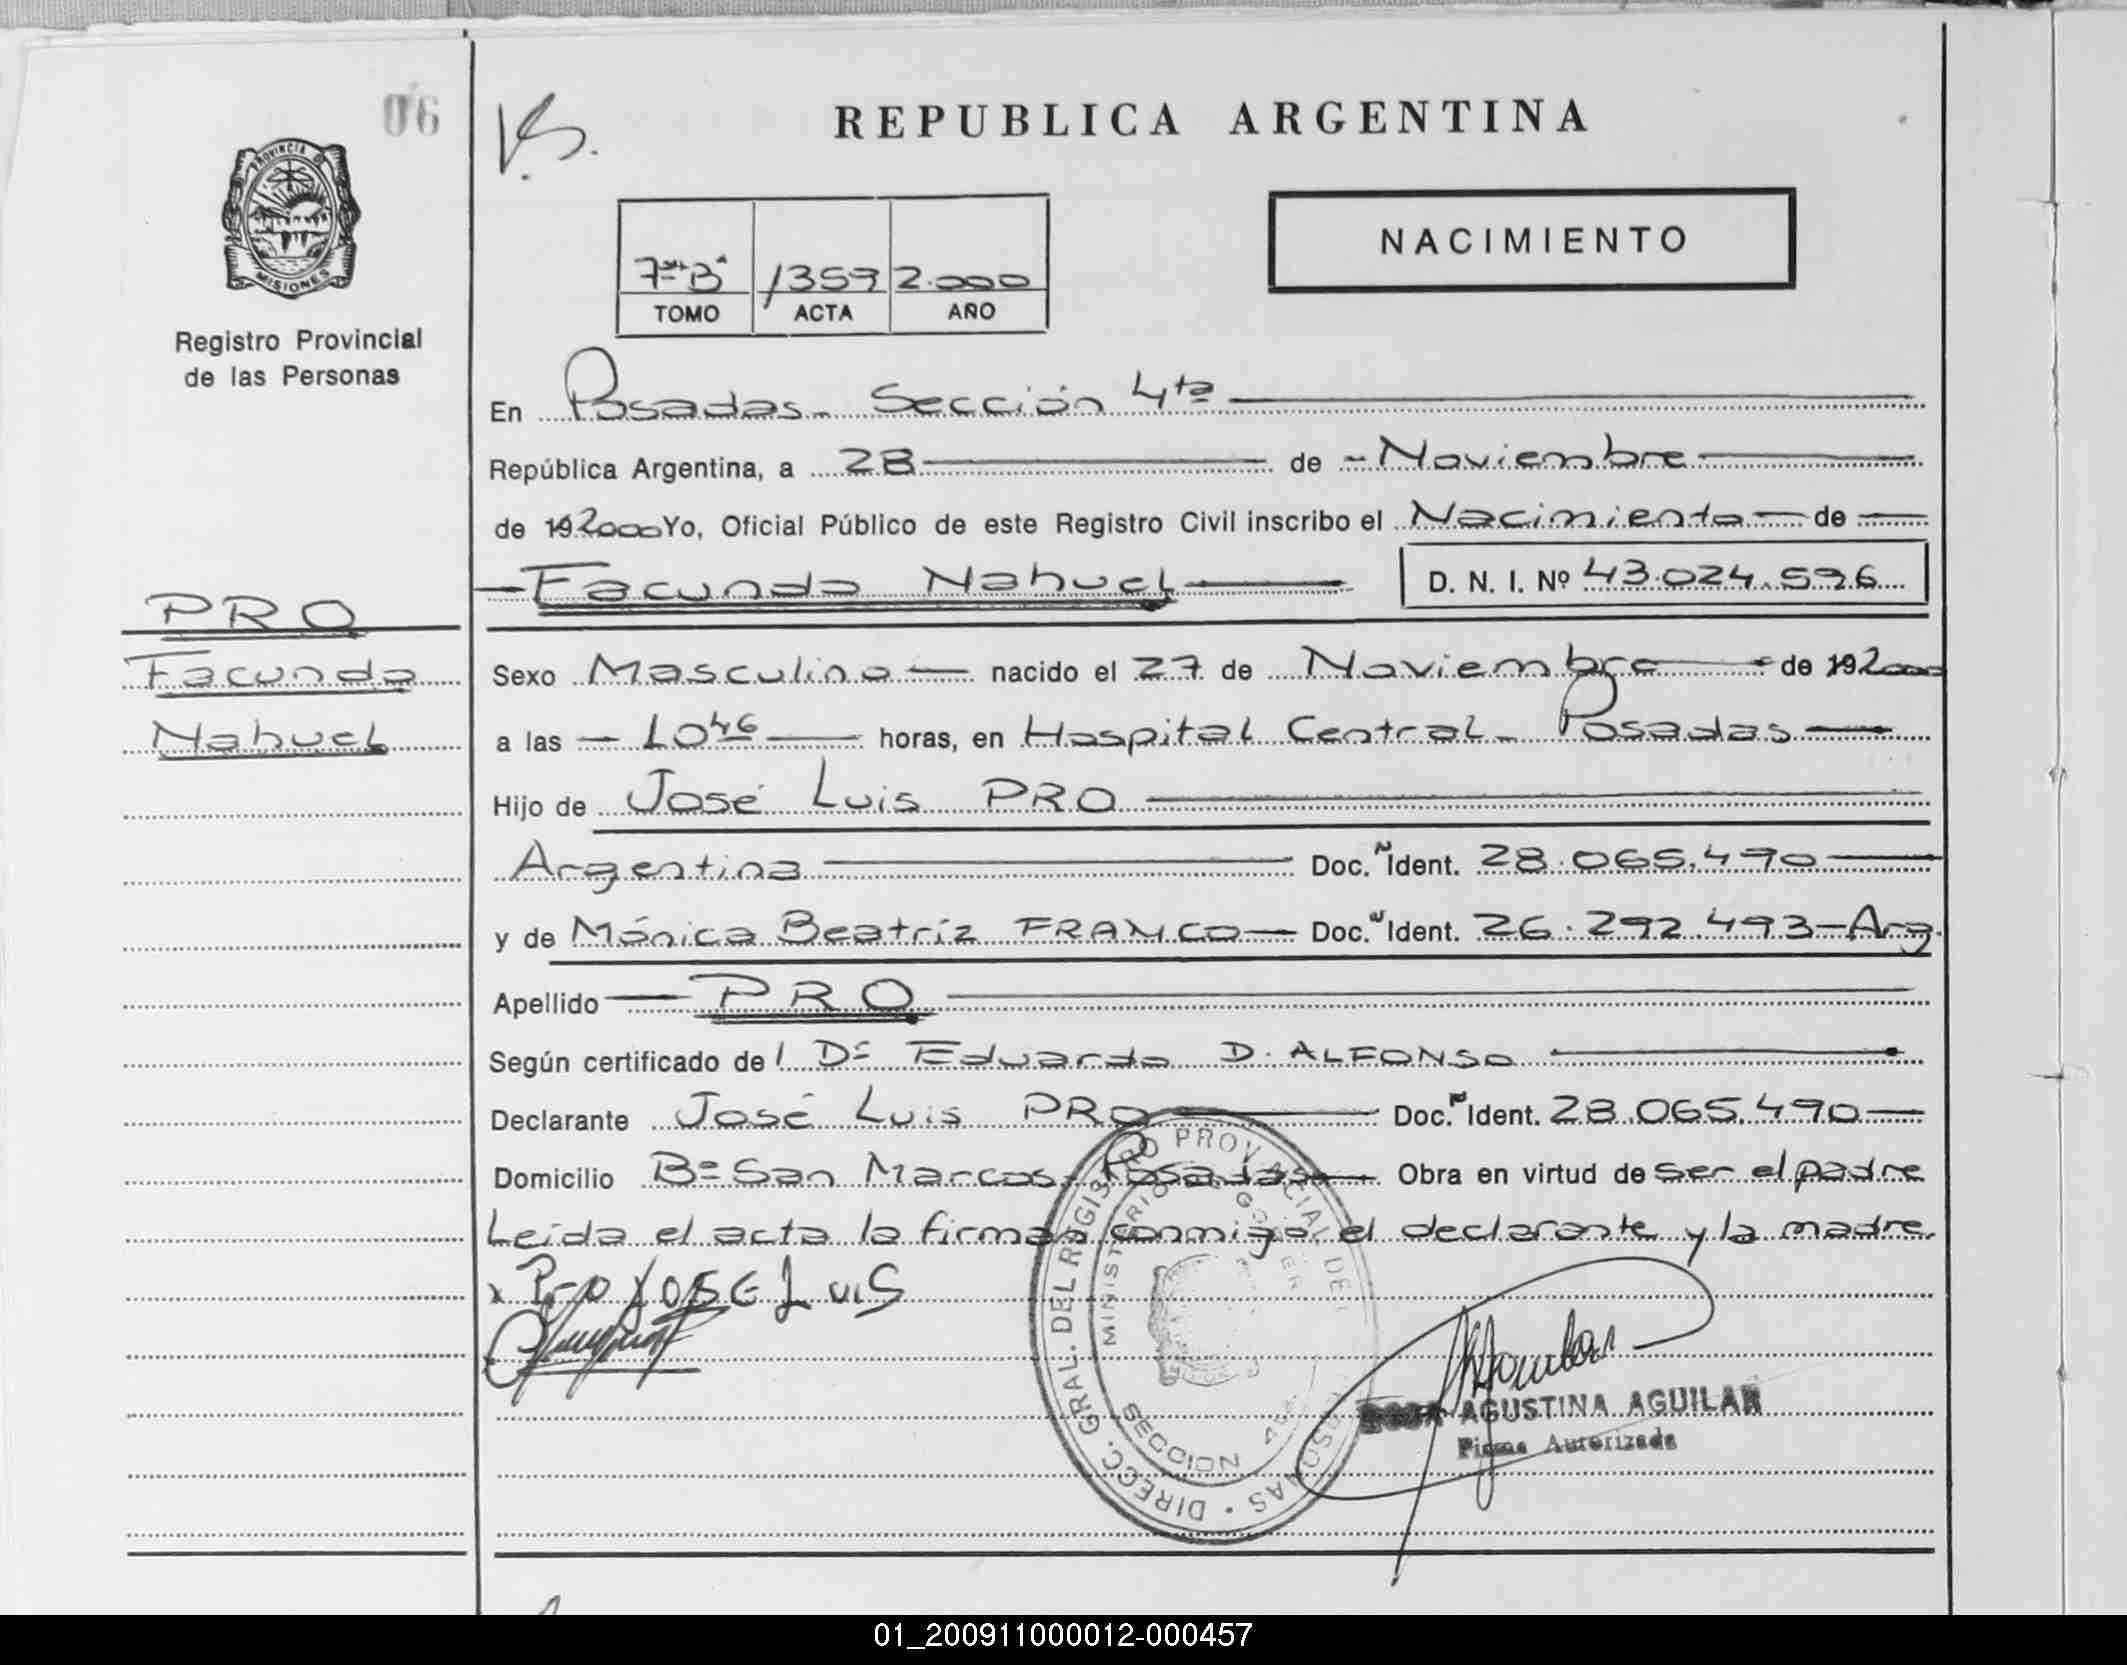 06
REPUBLICA ARGENTINA
PROVINCIA D
MISIONES
Registro Provincial
de las Personas
NACIMIENTO
7mo B 1359 2.000
TOMO ACTA AÑO
En Posadas - Sección 4ta
República Argentina, a 28 de - Noviembre
de 192000 Yo, Oficial Público de este Registro Civil inscribo el Nacimiento de
Facundo Nahuel D. N. I. Nº 43.024.596
PRO
Facundo
Nahuel
Sexo Masculino nacido el 27 de Noviembre de 192000
a las 10 46 horas, en Hospital Central - Posadas
Hijo de José Luis PRO
Argentina Doc. Ident. 28.065.490
y de Mónica Beatríz FRANCO Doc. Ident. 26.292.493 - Arg.
Apellido PRO
Según certificado de l Dr Eduardo D. ALFONSO
Declarante José Luis PRO Doc. Ident. 28.065.490
Domicilio Bº San Marcos - Posadas Obra en virtud de ser el padre
Leída el acta la firman conmigo el declarante y la madre.
x Pro JOSE LUIS
DIRECC. GRAL. DEL REGISTRO PROVINCIAL DE
MINISTERIO GOBIER
SECCION
AGUSTINA AGUILAR
Firma Autorizada
01_200911000012-000457